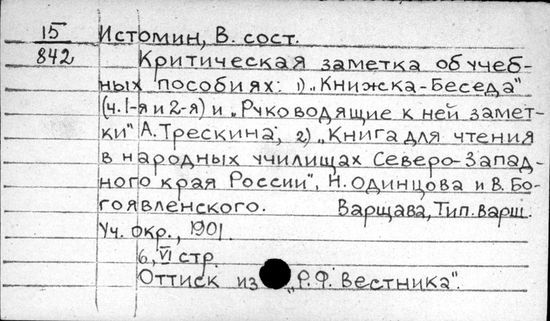 15 Истомин, В. сост.
842 Критическая заметка об учеб-
ных пособиях: 1) „Книжка-Беседа"
(ч. I-я и 2-я) и „Руководящие к ней замет-
ки" А. Трескина; 2) „Книга для чтения
в народных училищах Северо-Запад-
ного края России", Н. Одинцова и В. Бо-
гоявленского. Варшава, Тип. Варш.
Уч. окр., 1901.
6, VI стр.
Оттиск из „Р.Ф. Вестника".